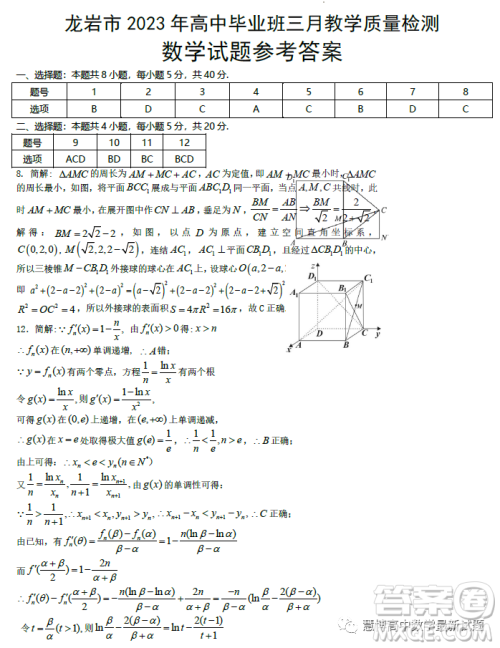 龙岩市 2023 年高中毕业班三月教学质量检测
数学试题参考答案
一、选择题：本题共 8 小题，每小题 5 分，共 40 分.
题号 1 2 3 4 5 6 7 8
选项 B D C A C B D
二、选择题：本题共 4 小题，每小题 5 分，共 20 分.
题号 9 10 11 12
选项 ACD BD BC BCD
8. 简解: △AMC 的周长为 AM + MC + AC, AC 为定值, 即 AM + MC 最小时, △AMC
的周长最小, 如图, 将平面 BCC₁ 展成与平面 ABC₁D₁ 同一平面, 当点 A, M, C 共线时, 此
时 AM + MC 最小, 在展开图中作 CN ⊥ AB, 垂足为 N, BM/CN = AB/AN ⇒ BM/√2 = 2/(2+√2)
解得: BM = 2√2 − 2, 如图, 以点 D 为原点, 建立空间直角坐标系,
C(0,2,0), M(√2,2,2−√2), 连结 AC₁, AC₁ ⊥ 平面 CB₁D₁, 且经过 △CB₁D₁ 的中心,
所以三棱锥 M − CB₁D₁ 外接球的球心在 AC₁ 上, 设球心 O(a,2−a,
即 a² + (2−a−2)² + (2−a)² = (a−√2)² + (2−a−2)² + (2−a−2+√2)²
R² = OC² = 4, 所以外接球的表面积 S = 4πR² = 16π, 故 C 正确
12. 简解: ∵ fₙ′(x) = 1 − n/x, 由 fₙ′(x) > 0 得: x > n
∴ fₙ(x) 在 (n,+∞) 单调递增, ∴ A 错;
∵ y = fₙ(x) 有两个零点, 方程 1/n = ln x/x 有两个根
令 g(x) = ln x/x, 则 g′(x) = (1−ln x)/x²,
可得 g(x) 在 (0,e) 上递增, 在 (e,+∞) 上单调递减,
∴ g(x) 在 x = e 处取得极大值 g(e) = 1/e, ∴ 1/n < 1/e, n > e, ∴ B 正确;
由上可得: ∴ xₙ < e < yₙ (n ∈ N*)
又 1/n = ln xₙ/xₙ, 1/(n+1) = ln xₙ₊₁/xₙ₊₁, 由 g(x) 的单调性可得:
∵ 1/n > 1/(n+1), ∴ xₙ₊₁ < xₙ < yₙ < yₙ₊₁, ∴ xₙ₊₁ − xₙ < yₙ₊₁ − yₙ, ∴ C 正确;
由已知, 有 fₙ′(θ) = (fₙ(β) − fₙ(α))/(β−α) = 1 − n(ln β − ln α)/(β−α)
而 f′((α+β)/2) = 1 − 2n/(α+β)
∴ fₙ′(θ) − f′((α+β)/2) = −n(ln β − ln α)/(β−α) + 2n/(α+β) = −n/(β−α) (ln β/α − 2(β−α)/(β+α))
令 t = β/α (t > 1), 则 ln β/α − 2(β−α)/(β+α) = ln t − 2(t−1)/(t+1)